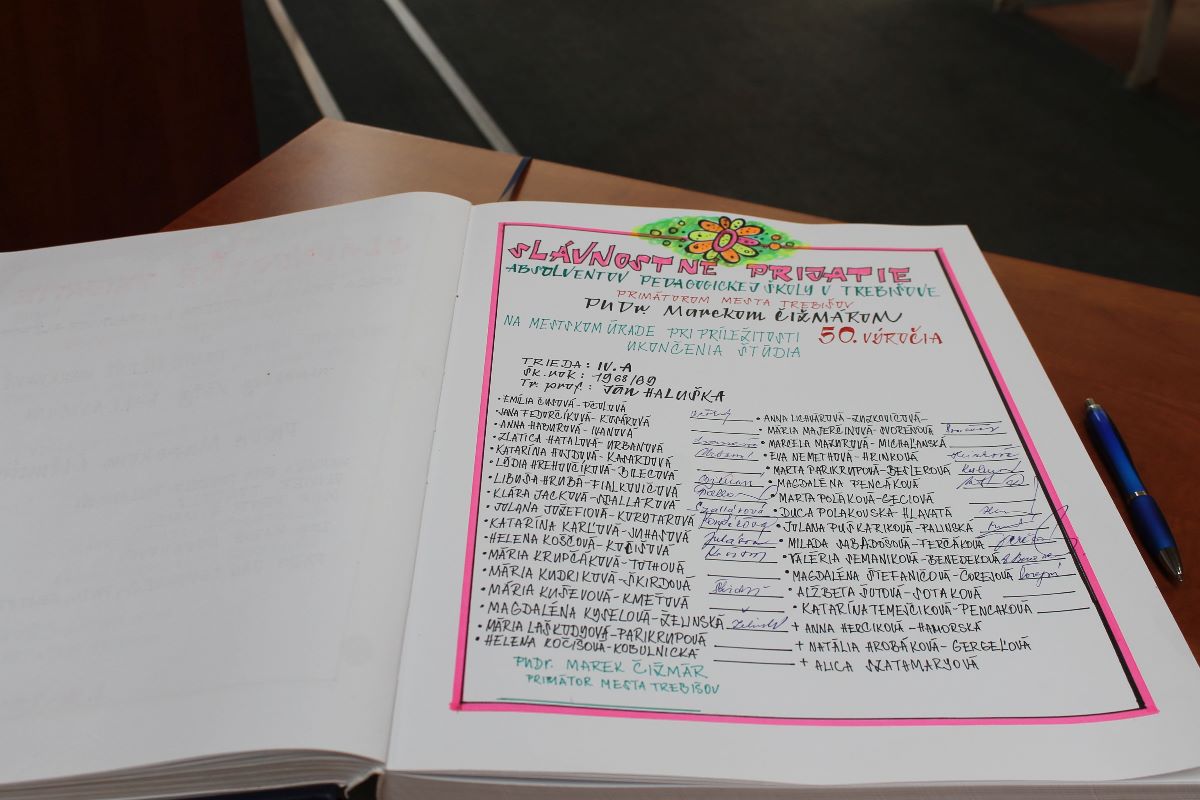 SLÁVNOSTNÉ PRIJATIE
ABSOLVENTOV PEDAGOGICKEJ ŠKOLY V TREBIŠOVE
PRIMÁTOROM MESTA TREBIŠOV
PhDr. Marekom ČIŽMÁROM
NA MESTSKOM ÚRADE PRI PRÍLEŽITOSTI 50. VÝROČIA
UKONČENIA ŠTÚDIA
TRIEDA: IV.A
ŠK. rok: 1968/69
Tr. prof: JÁN HALUŠKA
• EMÍLIA
• JANA FEDORČÍKOVÁ -
• ANNA HABUROVÁ - IVANOVÁ
• ZLATICA HATALOVÁ - URBANOVÁ
• KATARÍNA HUJDOVÁ -
• LÝDIA HREHOVČÍKOVÁ - BILECOVÁ
• LIBUŠA HRUBÁ - FIALKOVIČOVÁ
• KLÁRA JACKOVÁ -
• JOLANA
• KATARÍNA KARĽOVÁ - JUHASOVÁ
• HELENA KOŠČOVÁ -
• MÁRIA KRUPČÁKOVÁ - TÓTHOVÁ
• MÁRIA KUDRIKOVÁ - ŠKIRDOVÁ
• MÁRIA KUŠEVOVÁ - KMEŤOVÁ
• MAGDALÉNA KYSELOVÁ - ŽELINSKÁ
• MÁRIA LAŠKODYOVÁ - PARIKRUPOVÁ
• HELENA ROČIŠOVÁ - KOBULNICKÁ
PhDr. MAREK ČIŽMÁR
PRIMÁTOR MESTA TREBIŠOV
• ANNA
• MÁRIA MAJERČINOVÁ - DVOREŇOVÁ
• MARCELA MAZUROVÁ - MICHAĽANSKÁ
• EVA NEMETHOVÁ - HRINKOVÁ
• MARTA PARIKRUPOVÁ - BEŠLEROVÁ
• MAGDALÉNA PENCÁKOVÁ
• MARTA POLÁKOVÁ - GECIOVÁ
• DUCA POLAKOVSKÁ HLAVATÁ
• JOLANA PUŠKARIKOVÁ - PALINSKÁ
• MILADA SABADOŠOVÁ - TERČÁKOVÁ
• VALÉRIA SEMANIKOVÁ - BENEDEKOVÁ
• MAGDALÉNA ŠTEFANIČOVÁ - ČOREJOVÁ
• ALŽBETA ŠUTOVÁ - SOTÁKOVÁ
• KATARÍNA TEMEŠČIKOVÁ - PENCAKOVÁ
+ ANNA HERCIKOVÁ - HAMORSKÁ
+ NATÁLIA HROBÁKOVÁ - GERGEĽOVÁ
+ ALICA SZATAMARYOVÁ